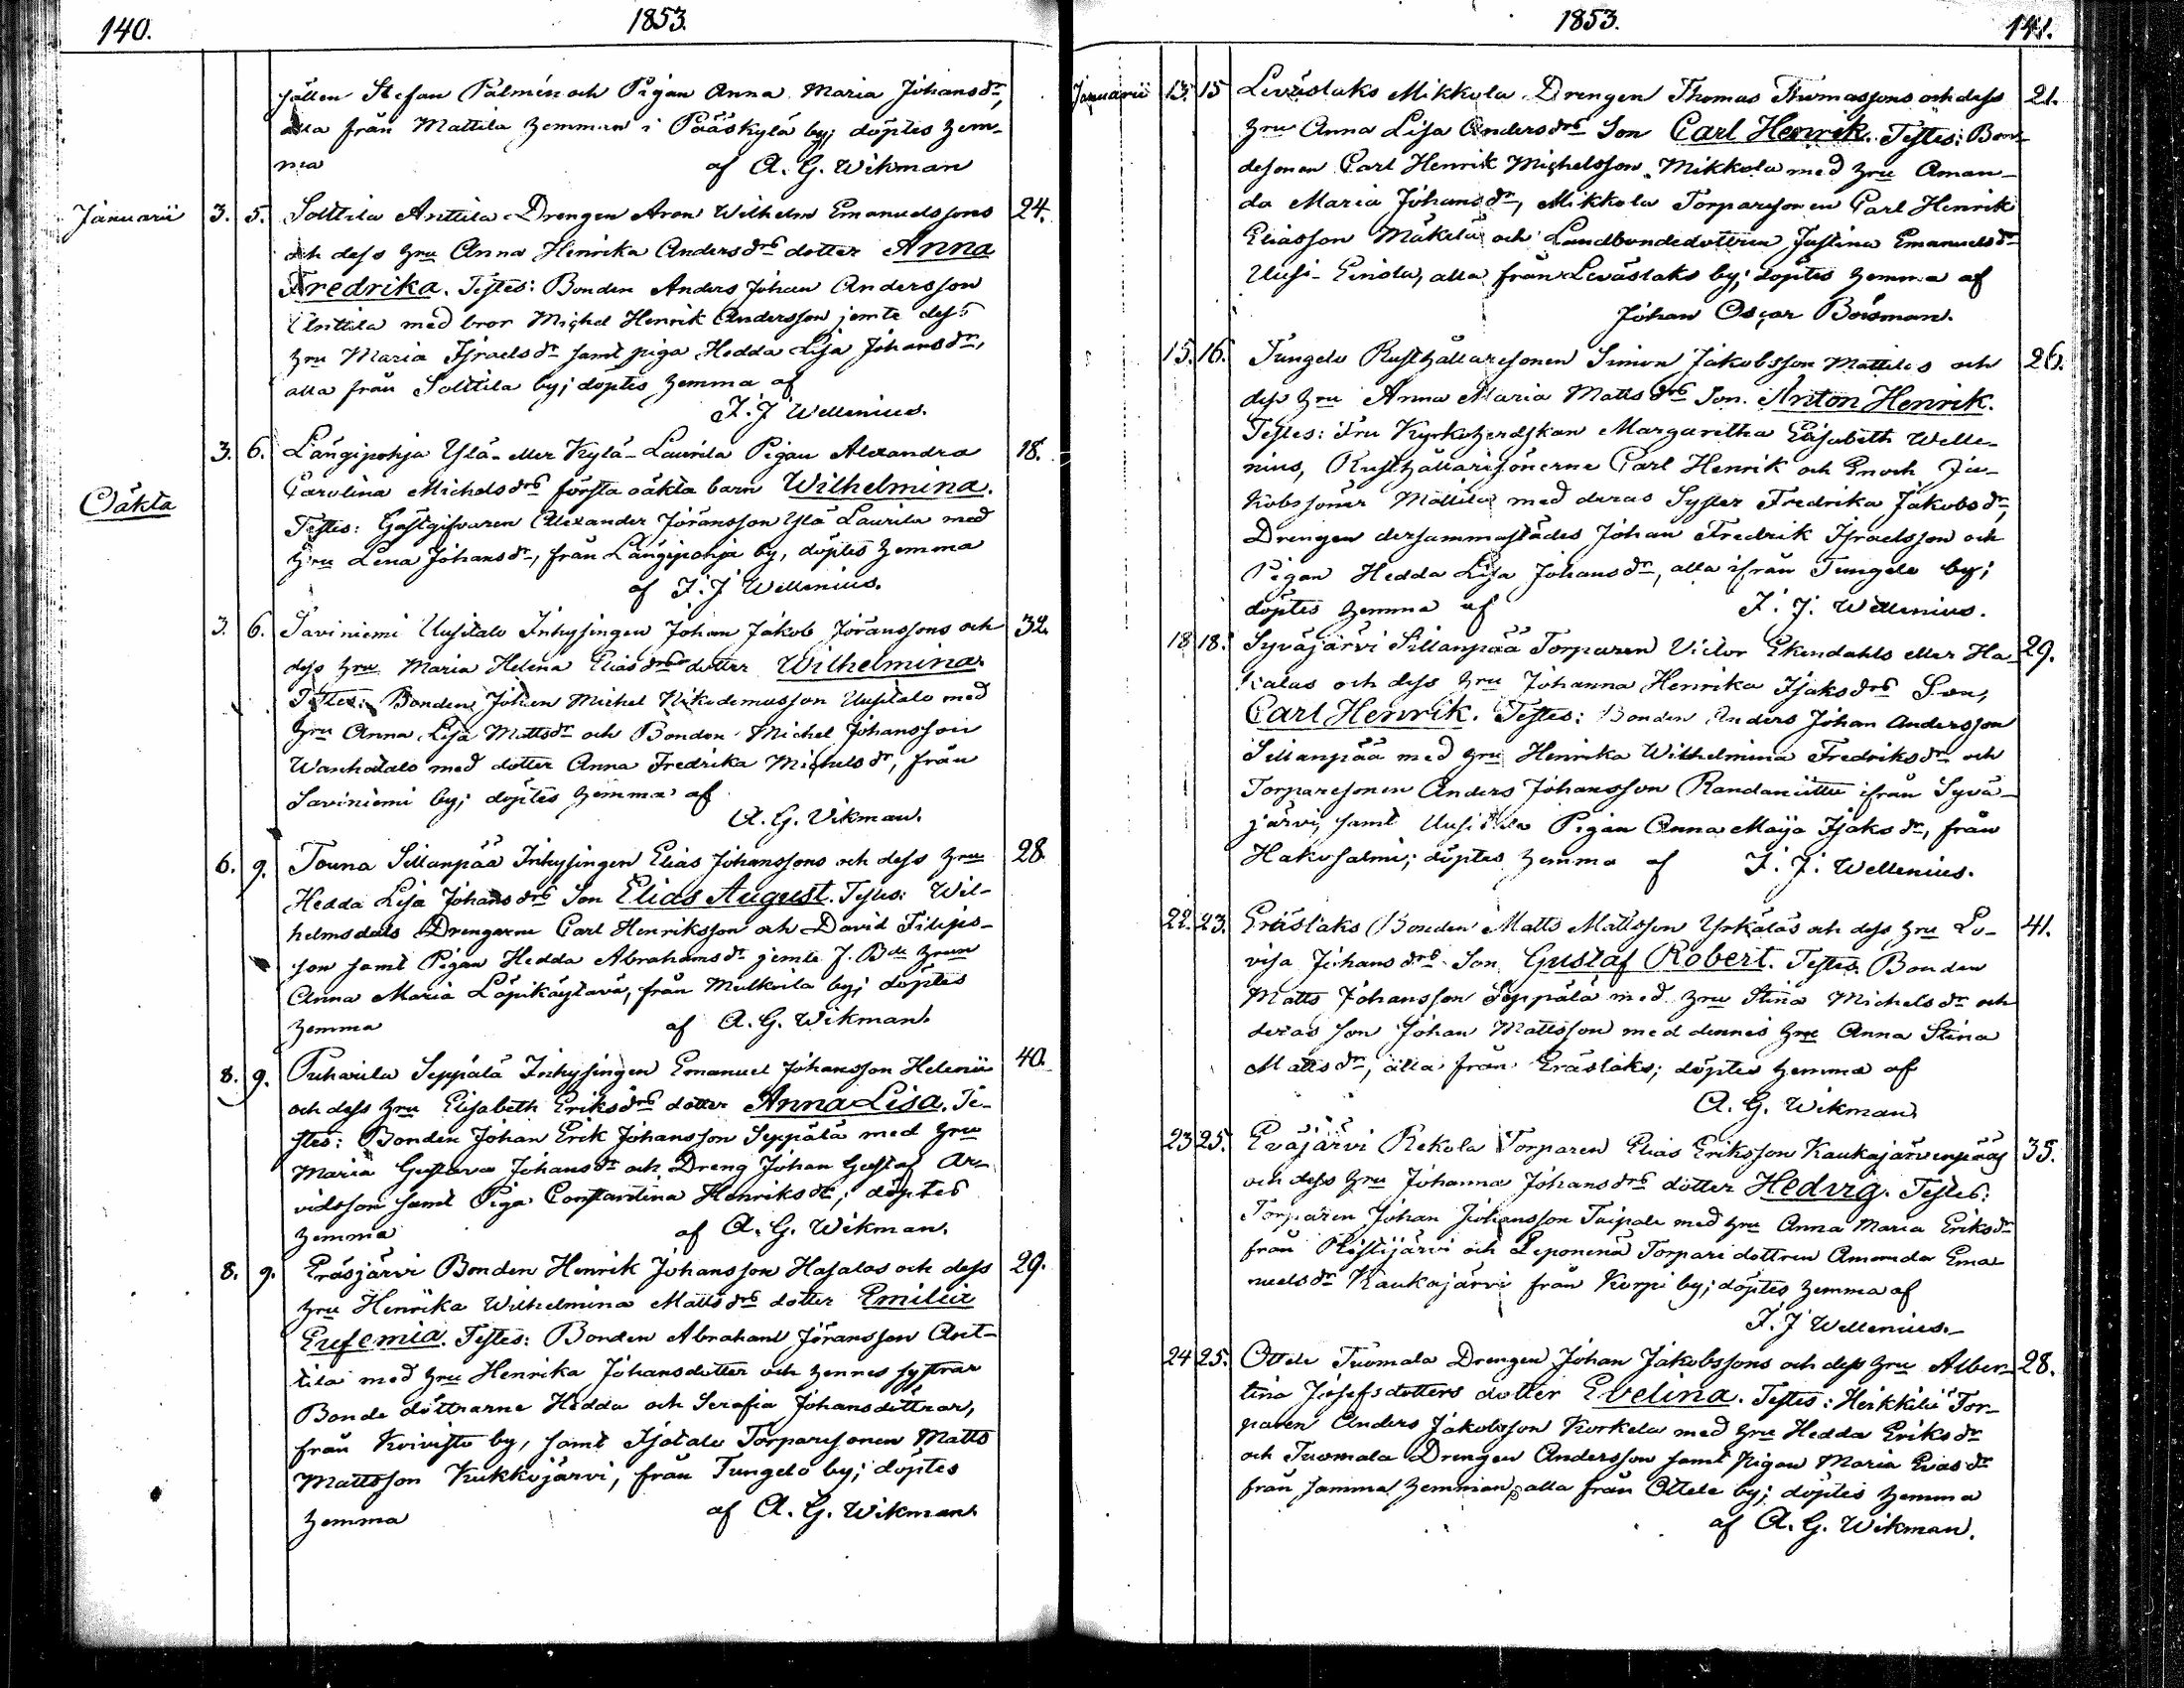 140.
1853.
hållen Stefan Palmén och Pigan Anna Maria Johansdr,
alla från Mattila hemman i Pääskylä by; döptes hem-
ma af A. G. Wikman
Januarii 3. 5. Solttila Anttila Drengen Aron Wilhelm Emanuelssons 24.
och dess hru Anna Henrika Andersdrs dotter Anna
Fredrika. Testes: Bonden Anders Johan Andersson
Anttila med bror Michel Henrik Andersson jemte dess
hru Maria Israelsdr samt piga Hedda Lisa Johansdr,
alla från Solttila by; döptes hemma af
F. J. Wellenius.
3. 6. Längipohja Ylä- eller Kylä-Laurila Pigan Alexandra 18.
Oäkta
Carolina Michelsdrs första oäkta barn Wilhelmina.
Testes: Gästgifvaren Alexander Jöransson Ylä Laurila med
hru Lena Johansdr, från Längipohja by, döptes hemma
af F. J. Wellenius.
3. 6. Saviniemi Uusitalo Inhysingen Johan Jakob Jöranssons och 32.
dess hru Maria Helena Eliasdrs dotter Wilhelmina.
Testes: Bonden Johan Michel Nikodemusson Uusitalo med
hru Anna Lisa Mattsdr och Bonden Michel Johansson
Wanhatalo med dotter Anna Fredrika Michelsdr, från
Saviniemi by; döptes hemma af
A. G. Vikman.
6. 9. Touna Sillanpää Inhysingen Elias Johanssons och dess hru 28
Hedda Lisa Johansdrs Son Elias August. Testes: Wil-
helmsdals Drengarne Carl Henriksson och David Filips-
son samt Pigan Hedda Abrahamsdr jemte J. Bde hrun
Anna Maria Läpikäytävä, från Mulkoila by; döptes
hemma af A. G. Wikman.
8. 9. Puharila Seppälä Inhysingen Emanuel Johansson Helenii 40.
och dess hru Elisabeth Eriksdrs dotter Anna Lisa. Te-
stes: Bonden Johan Erik Johansson Seppälä med hru
Maria Gustava Johansdr och Dreng Johan Gustaf Ar-
vidsson samt Piga Constantina Henriksdr; döptes
hemma af A. G. Wikman.
8. 9. Eräsjärvi Bonden Henrik Johansson Hasalas och dess 29.
hru Henrika Wilhelmina Mattsdrs dotter Emilia
Eufemia. Testes: Bonden Abraham Jöransson Ant-
tila med hru Henrika Johansdotter och hennes systrar
Bonde döttrarne Hedda och Serafia Johansdöttrar,
från Koivisto by, samt Isotalo Torparesonen Matts
Mattsson Kukkojärvi, från Tungelo by; döptes
hemma af A. G. Wikman.
1853.
141.
Januarii 13. 15 Leväslaks Mikkola Drengen Thomas Thomassons och dess 21.
hru Anna Lisa Andersdrs Son Carl Henrik. Testes: Bon-
desonen Carl Henrik Michelsson Mikkola med hru Aman-
da Maria Johansdr, Mikkola Torparesonen Carl Henrik
Eliasson Mäkelä och Landbondedottren Justina Emanuelsdr
Uusi-Einola, alla från Leväslaks by; döptes hemma af
Johan Oscar Boisman.
15. 16. Tungelo Rusthållaresonen Simon Jakobsson Mattilas och 26.
dess hru Anna Maria Mattsdrs Son Anton Henrik.
Testes: Fru Kyrkoherdskan Margaretha Elisabeth Welle-
nius, Rusthållaresönerne Carl Henrik och Enoch Ja-
kobssöner Mattila med deras Syster Fredrika Jakobsdr,
Drengen dersammastädes Johan Fredrik Israelsson och
Pigan Hedda Lisa Johansdr, alla ifrån Tungelo by;
döptes hemma af F. J. Wellenius.
18 18. Syväjärvi Sillanpää Torparen Victor Ekendahls eller Ha- 29.
kalas och dess hru Johanna Henrika Isaksdrs Son,
Carl Henrik. Testes: Bonden Anders Johan Andersson
Sillanpää med hru Henrika Wilhelmina Fredriksdr och
Torparesonen Anders Johansson Randaniittu ifrån Syvä-
järvi, samt Pigan Anna Maija Isaksdr, från
Hakosalmi; döptes hemma af F. J. Wellenius.
22. 23. Eräslaks Bonden Matts Mattsson Yrkäläs och dess hru Lo- 41.
visa Johansdrs Son Gustaf Robert. Testes: Bonden
Matts Johansson Seppälä med hru Stina Michelsdr och
deras son Johan Mattsson med dennes hru Anna Stina
Mattsdr, alla från Eräslaks; döptes hemma af
A. G. Wikman.
23 25. Eväjärvi Rekola Torparen Elias Eriksson Kaukajärvenpääs 35.
och dess hru Johanna Johansdrs dotter Hedvig. Testes:
Torparen Johan Johansson Taipale med hru Anna Maria Eriksdr
från och Leponenä Torpare dottren Amanda Ema-
nuelsdr Kaukajärvi från Korpi by; döptes hemma af
F. J. Wellenius.
24 25. Ottele Tuomala Drengen Johan Jakobssons och dess hru Alber- 28.
tina Josefsdotters dotter Evelina. Testes: Heikkilä Tor-
paren Anders Jakobsson Korkela med hru Hedda Eriksdr
och Tuomala Drengen Andersson samt Pigan Maria Evasdr
från samma hemman, alla från Ottele by; döptes hemma
af A. G. Wikman.